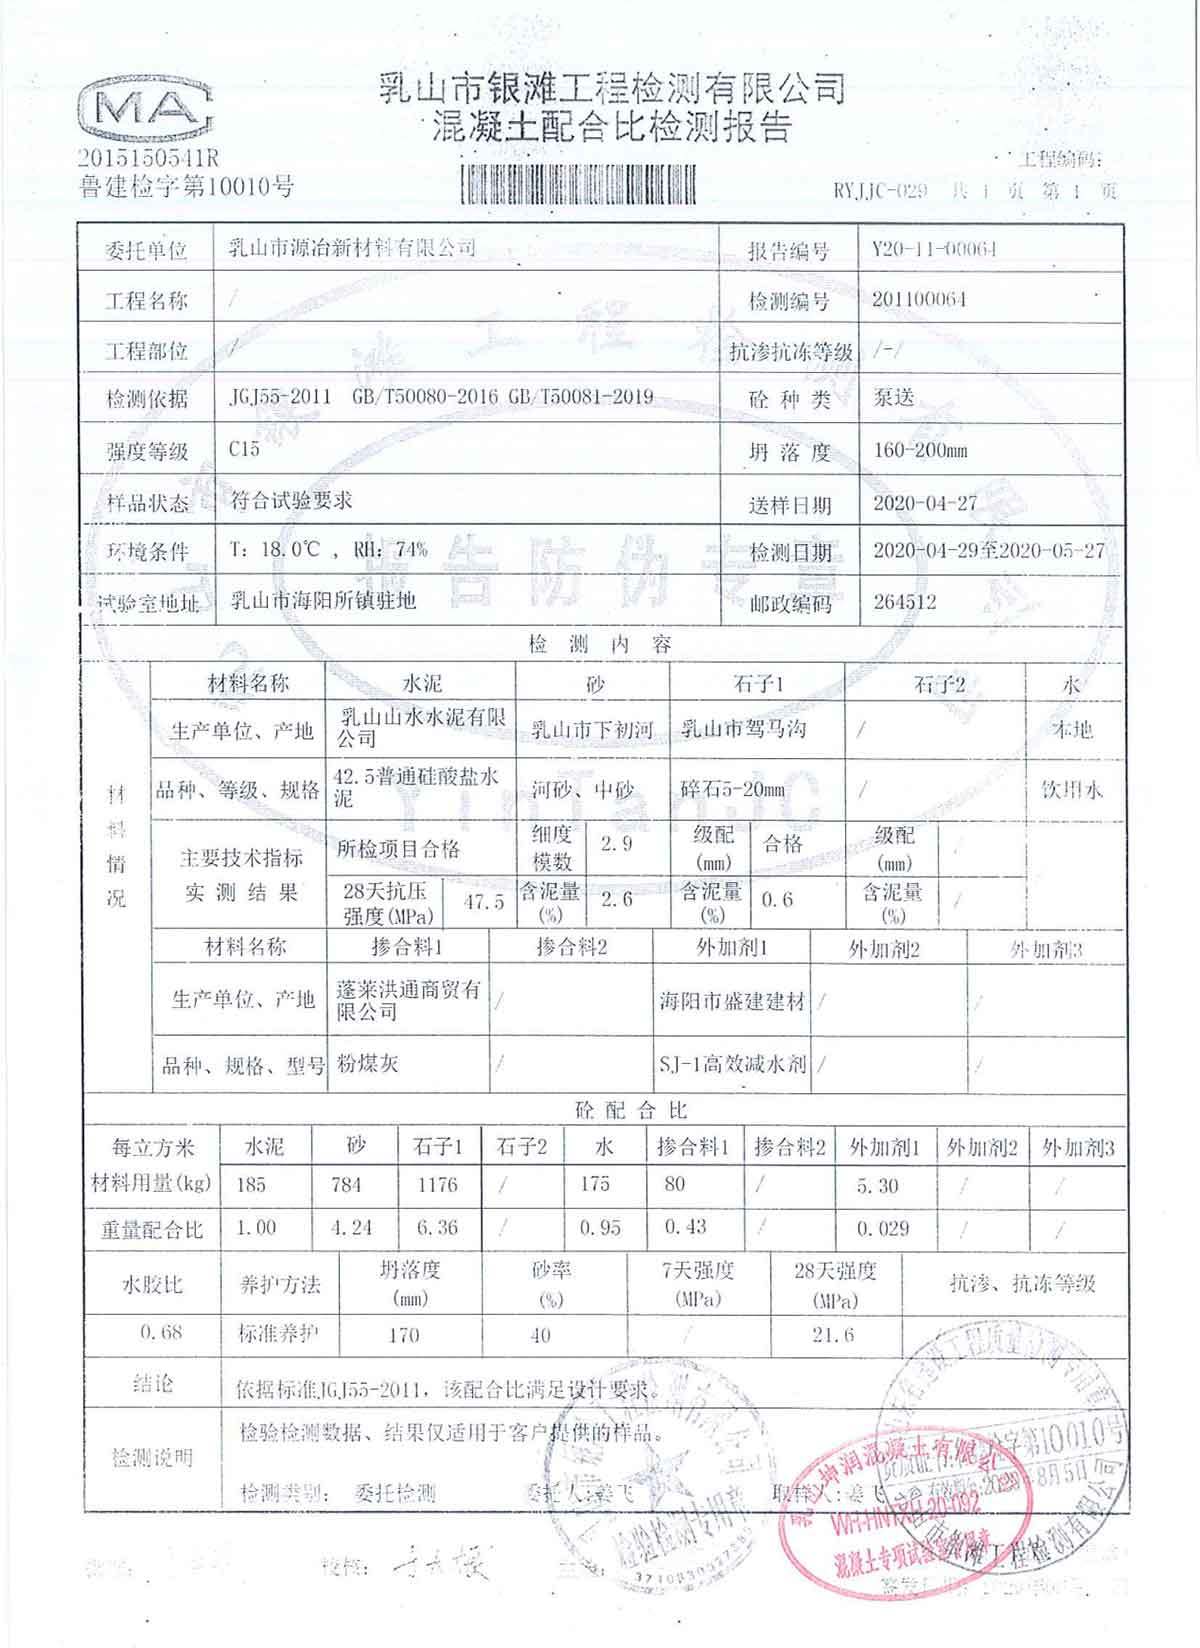 MA
乳山市银滩工程检测有限公司
混凝土配合比检测报告
2015150541R
鲁建检字第10010号
工程编码:
RYJJC-029 共 1 页 第 1 页
委托单位 乳山市源冶新材料有限公司 报告编号 Y20-11-00064
工程名称 / 检测编号 201100064
工程部位 / 抗渗抗冻等级 /-/
检测依据 JGJ55-2011 GB/T50080-2016 GB/T50081-2019 砼 种 类 泵送
强度等级 C15 坍 落 度 160-200mm
样品状态 符合试验要求 送样日期 2020-04-27
环境条件 T: 18.0℃ , RH: 74% 检测日期 2020-04-29至2020-05-27
试验室地址 乳山市海阳所镇驻地 邮政编码 264512
报告防伪专章
YinTanJC
检 测 内 容
材料情况
材料名称 水泥 砂 石子1 石子2 水
生产单位、产地 乳山山水水泥有限公司 乳山市下初河 乳山市驾马沟 / 本地
品种、等级、规格 42.5普通硅酸盐水泥 河砂、中砂 碎石5-20mm / 饮用水
主要技术指标 所检项目合格 细度模数 2.9 级配(mm) 合格 级配(mm) /
实 测 结 果 28天抗压强度(MPa) 47.5 含泥量(%) 2.6 含泥量(%) 0.6 含泥量(%) /
材料名称 掺合料1 掺合料2 外加剂1 外加剂2 外加剂3
生产单位、产地 蓬莱洪通商贸有限公司 / 海阳市盛建建材 / /
品种、规格、型号 粉煤灰 / SJ-1高效减水剂 / /
砼 配 合 比
每立方米 水泥 砂 石子1 石子2 水 掺合料1 掺合料2 外加剂1 外加剂2 外加剂3
材料用量(kg) 185 784 1176 / 175 80 / 5.30 / /
重量配合比 1.00 4.24 6.36 / 0.95 0.43 / 0.029 / /
水胶比 养护方法 坍落度(mm) 砂率(%) 7天强度(MPa) 28天强度(MPa) 抗渗、抗冻等级
0.68 标准养护 170 40 / 21.6
结论 依据标准JGJ55-2011，该配合比满足设计要求。
检测说明 检验检测数据、结果仅适用于客户提供的样品。
检测类别: 委托检测 委托人:姜飞 取样人:姜飞
校核:
检验检测专用章
乳山坤润混凝土有限公司
混凝土专项试验